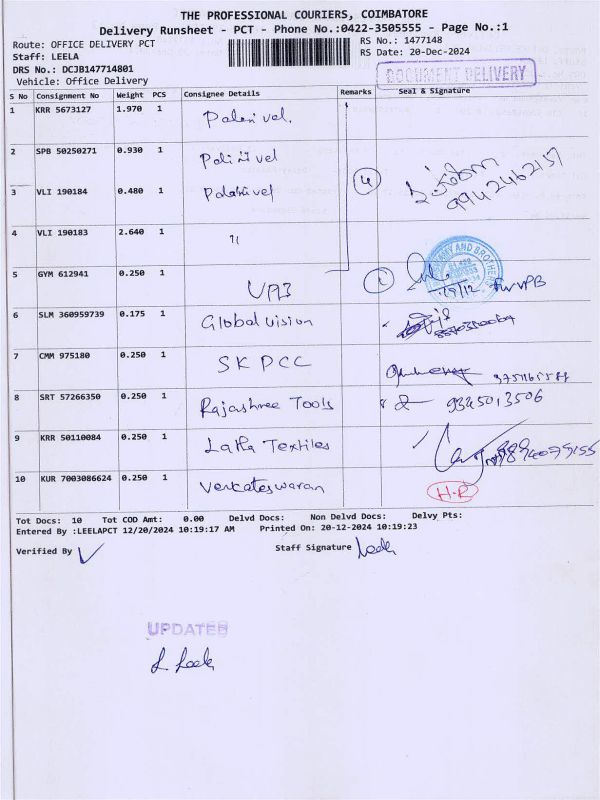 THE PROFESSIONAL COURIERS, COIMBATORE
Delivery Runsheet - PCT - Phone No.:0422-3505555 - Page No.:1
Route: OFFICE DELIVERY PCT
RS No.: 1477148
Staff: LEELA
RS Date: 20-Dec-2024
DRS No.: DCJB147714801
Vehicle: Office Delivery
DOCUMENT DELIVERY
S No Consignment No Weight PCS Consignee Details Remarks Seal & Signature
1 KRR 5673127 1.970 1 Palanivel.
2 SPB 50250271 0.930 1 Palinivel
3 VLI 190184 0.480 1 Palanivel
4 9942462157
4 VLI 190183 2.640 1 "
5 GYM 612941 0.250 1 VPB 1 For VPB
6 SLM 360959739 0.175 1 Global vision
7 CMM 975180 0.250 1 SKPCC
8 SRT 57266350 0.250 1 Rajashree Tools 9345013506
9 KRR 50110084 0.250 1 Latha Textiles
10 KUR 7003086624 0.250 1 Venkateswaran H.R
Tot Docs: 10 Tot COD Amt: 0.00 Delvd Docs: Non Delvd Docs: Delvy Pts:
Entered By :LEELAPCT 12/20/2024 10:19:17 AM Printed On: 20-12-2024 10:19:23
Verified By Staff Signature Leela
UPDATED
L. Leela